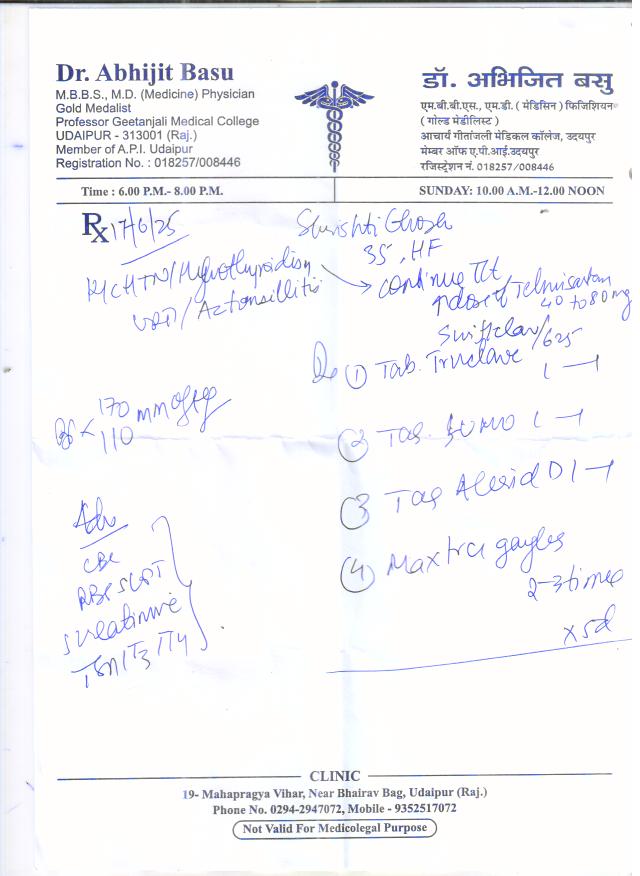 Dr. Abhijit Basu
M.B.B.S., M.D. (Medicine) Physician
Gold Medalist
Professor Geetanjali Medical College
UDAIPUR - 313001 (Raj.)
Member of A.P.I. Udaipur
Registration No. : 018257/008446
डॉ. अभिजित बसु
एम.बी.बी.एस., एम.डी. ( मेडिसिन ) फिजिशियन
( गोल्ड मेडीलिस्ट )
आचार्य गीतांजली मेडिकल कॉलेज, उदयपुर
मेम्बर ऑफ ए.पी.आई.उदयपुर
रजिस्ट्रेशन नं. 018257/008446
Time : 6.00 P.M.- 8.00 P.M.
SUNDAY: 10.00 A.M.-12.00 NOON
Rx 17/6/25
Shrishti Ghosh
35, HF
K/C HTN/Hypothyroidism
URTI/Ac tonsillitis
→ continue Tt
↑dose of Telmisartan
40 to 80 mg
Swiftclav/625
① Tab. Truclave 1 —1
BP < 170 mm of Hg
110
② Tab. SUMO 1 —1
③ Tab Alerid D 1 —1
④ Maxtra gargles
2-3 times
x 5d
Adv
CBC
RBS SGPT
S creatinine
TSH T3 T4
CLINIC
19- Mahapragya Vihar, Near Bhairav Bag, Udaipur (Raj.)
Phone No. 0294-2947072, Mobile - 9352517072
Not Valid For Medicolegal Purpose